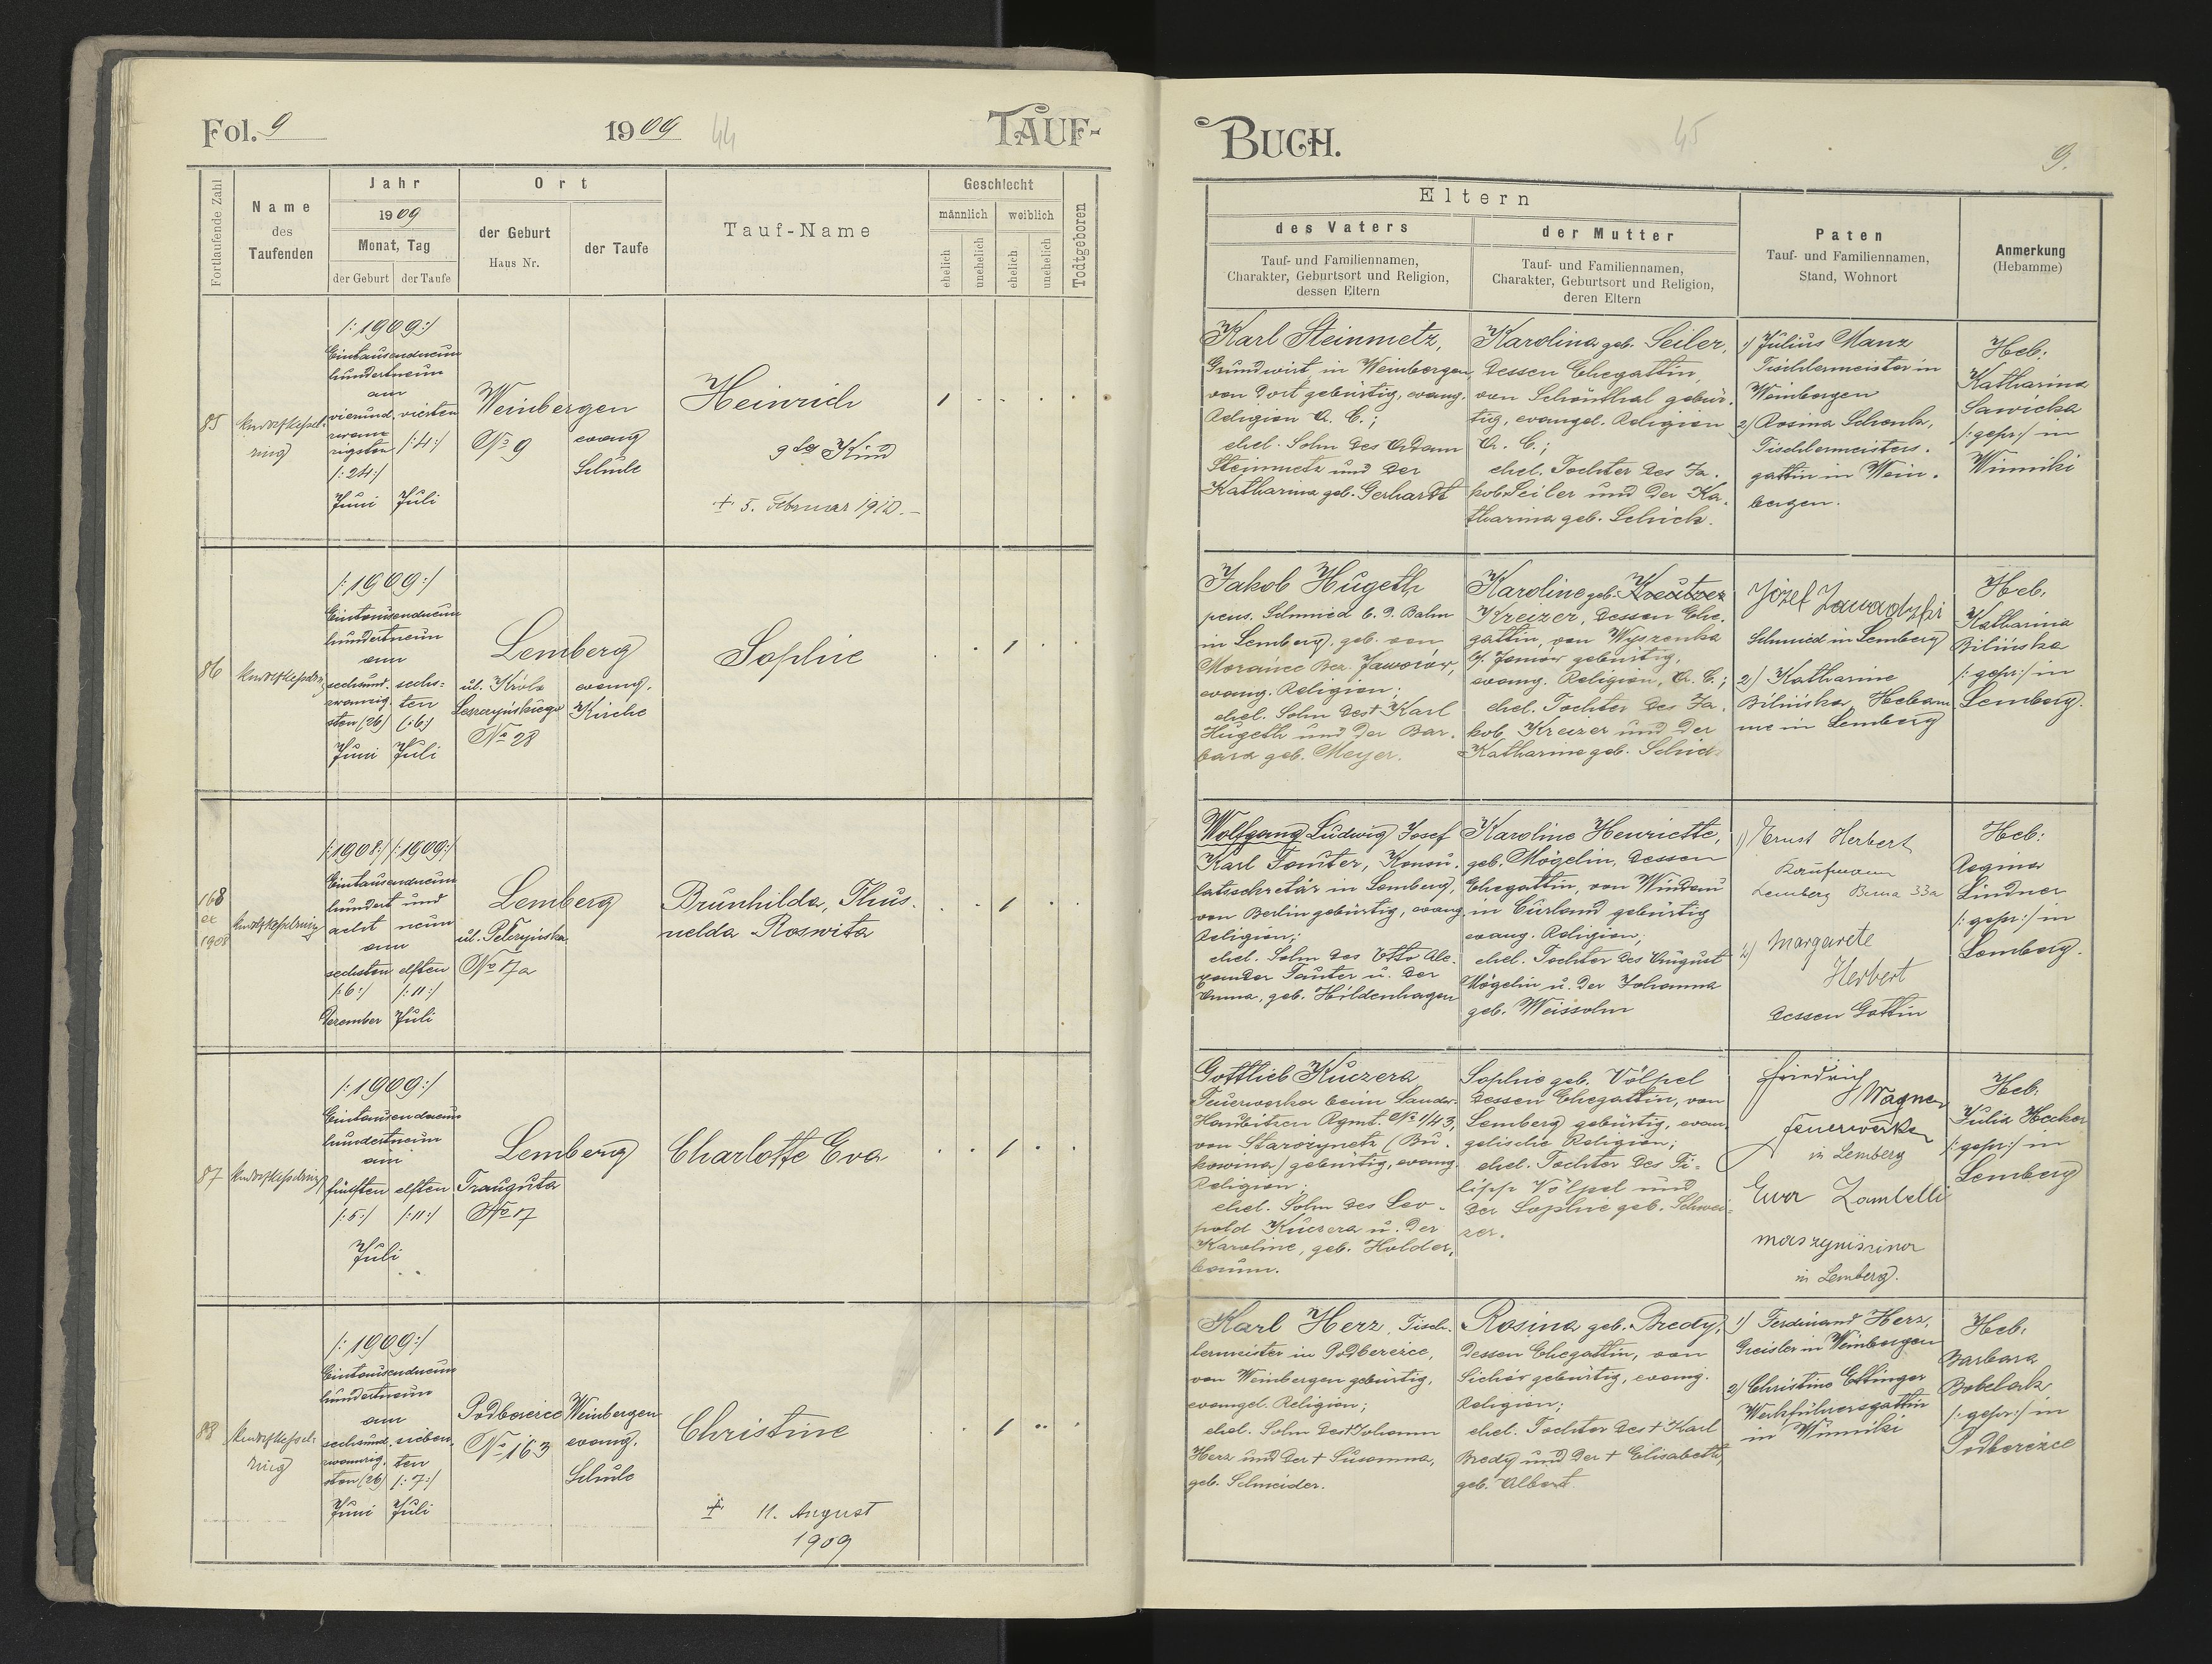 Fol. 9
1909 44
TAUF-
Fortlaufende Zahl
Name
des
Taufenden
Jahr
1909
Monat, Tag
der Geburt der Taufe
Ort
der Geburt
Haus Nr.
der Taufe
Tauf-Name
Geschlecht
männlich weiblich
ehelich
unehelich
ehelich
unehelich
Todtgeboren
85
/:1909:/
Eintausendneun
hundertneun
am
vierund- vierten
zwan-
zigsten /:4:/
/:24:/
Juni Juli
Weinbergen
No 9
evang
Schule
Heinrich
9tes Kind
+ 5. Februar 1910.-
1
86
/:1909:/
Eintausendneun
hundertneun
am
sechsund- sechs-
zwanzig- ten
sten (26) (:6:)
Juni Juli
Lemberg
ul. Króla
Leszczyńskiego
No 28
evang.
Kirche
Sophie
1
168
ex
1908
/:1908:/ /:1909:/
Eintausendneun
hundert und
acht neun
am
sechsten elften
/:6:/ /:11:/
Dezember Juli
Lemberg
ul. Pełczyńska
No 17a
Brunhilda, Thus-
nelda Roswita
1
87
/:1909:/
Eintausendneun
hundertneun
am
fünften elften
/:5:/ /:11:/
Juli
Lemberg
Trauguta
No 17
Charlotte Eva
1
88
/:1909:/
Eintausendneun
hundertneun
am
sechsund- sieben-
zwanzig- ten
sten (26) /:7:/
Juni Juli
Podberezce
No 163
Weinbergen
evang.
Schule
Christine
+ 11. August
1909
1
BUCH.
45
9.
Eltern
des Vaters
Tauf- und Familiennamen,
Charakter, Geburtsort und Religion,
dessen Eltern
der Mutter
Tauf- und Familiennamen,
Charakter, Geburtsort und Religion,
deren Eltern
Paten
Tauf- und Familiennamen,
Stand, Wohnort
Anmerkung
(Hebamme)
Karl Steinmetz,
Grundwirt in Weinbergen,
von dort gebürtig, evang.
Religion A. C.;
ehel. Sohn des Adam
Steinmetz und der
Katharina geb. Gerhardt
Karolina geb. Seiler,
dessen Ehegattin,
von Schönthal gebür-
tig, evangel. Religion
A. C.;
ehel. Tochter des Ja-
kob Seiler und der Ka-
tharina geb. Schick.
1) Julius Manz
Tischlermeister in
Weinbergen
2) Rosina Schenk,
Tischlermeisters-
gattin in Wein-
bergen.
Heb:
Katharina
Sawicka
/:gepr:/ in
Winniki
Jakob Hugeth
pens. Schmied b. d. Bahn
in Lemberg, geb. von
Morańce Bez. Jaworów,
evang. Religion;
ehel. Sohn des + Karl
Hugeth und der Bar-
bara geb. Meyer.
Karoline geb. Kreutzer
Kreizer, dessen Ehe-
gattin, von Wyszenka
b/ Janów gebürtig,
evang. Religion, A. C.;
ehel. Tochter des Ja-
kob Kreizer und der
Katharine geb.
Józef Zawadzki
Schmied in Lemberg
2) Katharine
Bilińska, Hebam-
me in Lemberg
Heb.
Katharina
Bilińska
/:gepr:/ in
Lemberg.
Wolfgang Ludwig Josef
Karl Tauter, Konsu-
latssekretär in Lemberg,
von Berlin gebürtig, evang.
Religion;
ehel. Sohn des Otto Ale-
xander Tauter u. der
Emma, geb. Hildenhagen
Karoline Henriette,
geb. Mögelin, dessen
Ehegattin, von Windau
in Curland gebürtig
evang. Religion;
ehel. Tochter des August
Mögelin u. der Johanna
geb. Weissohn
1) Ernst Herbert
Kaufmann
Lemberg 33a
2) Margarete
Herbert
dessen Gattin
Heb:
Regina
Lindner
/:gepr:/ in
Lemberg.
Gottlieb Kuczera
Feuerwerker beim
Haubitzen Rgmt. No 1/43,
von Starożynetz (Bu-
kowina) gebürtig, evang.
Religion;
ehel. Sohn des Leo-
pold Kuczera u. der
Karoline, geb. Holder-
baum.
Sophie geb. Völpel
dessen Ehegattin, von
Lemberg gebürtig, evan-
gelische Religion;
ehel. Tochter des Fi-
lipp Völpel und
der Sophie geb. Schwei-
zer.
Friedrich
Wagner
Feuerwerker
in Lemberg
Ewa Zambelli
in Lemberg.
Heb:
Julia Hecker
/:gepr:/ in
Lemberg
Karl Herz, Tisch-
lermeister in Podberezce,
von Weinbergen gebürtig,
evangel. Religion;
ehel. Sohn des + Johann
Herz und der + Susanna,
geb. Schneider.
Rosina geb. Bredy,
dessen Ehegattin, von
Sichów gebürtig, evang.
Religion;
ehel. Tochter des + Karl
Bredy und der + Elisabeth,
geb. Albert.
1) Ferdinand Herz,
Greisler in Weinbergen
2) Christine Ettinger
Werkführersgattin
in Winniki
Heb:
Barbara
Bobelak
/:gepr:/ in
Podberezce